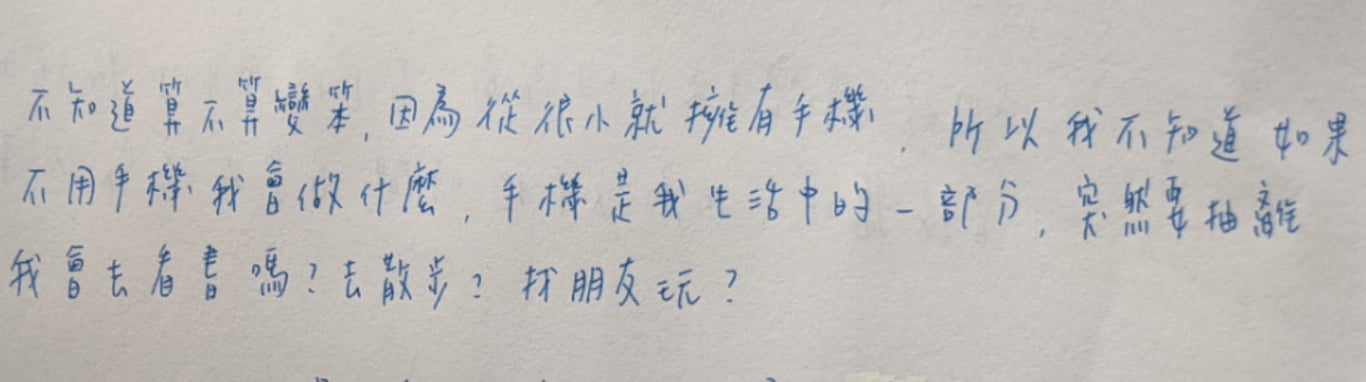 不知道算不算變笨,因為從很小就擁有手機,所以我不知道如果
不用手機我會做什麼,手機是我生活中的一部分,突然要抽離
我會去看書嗎?去散步?找朋友玩?